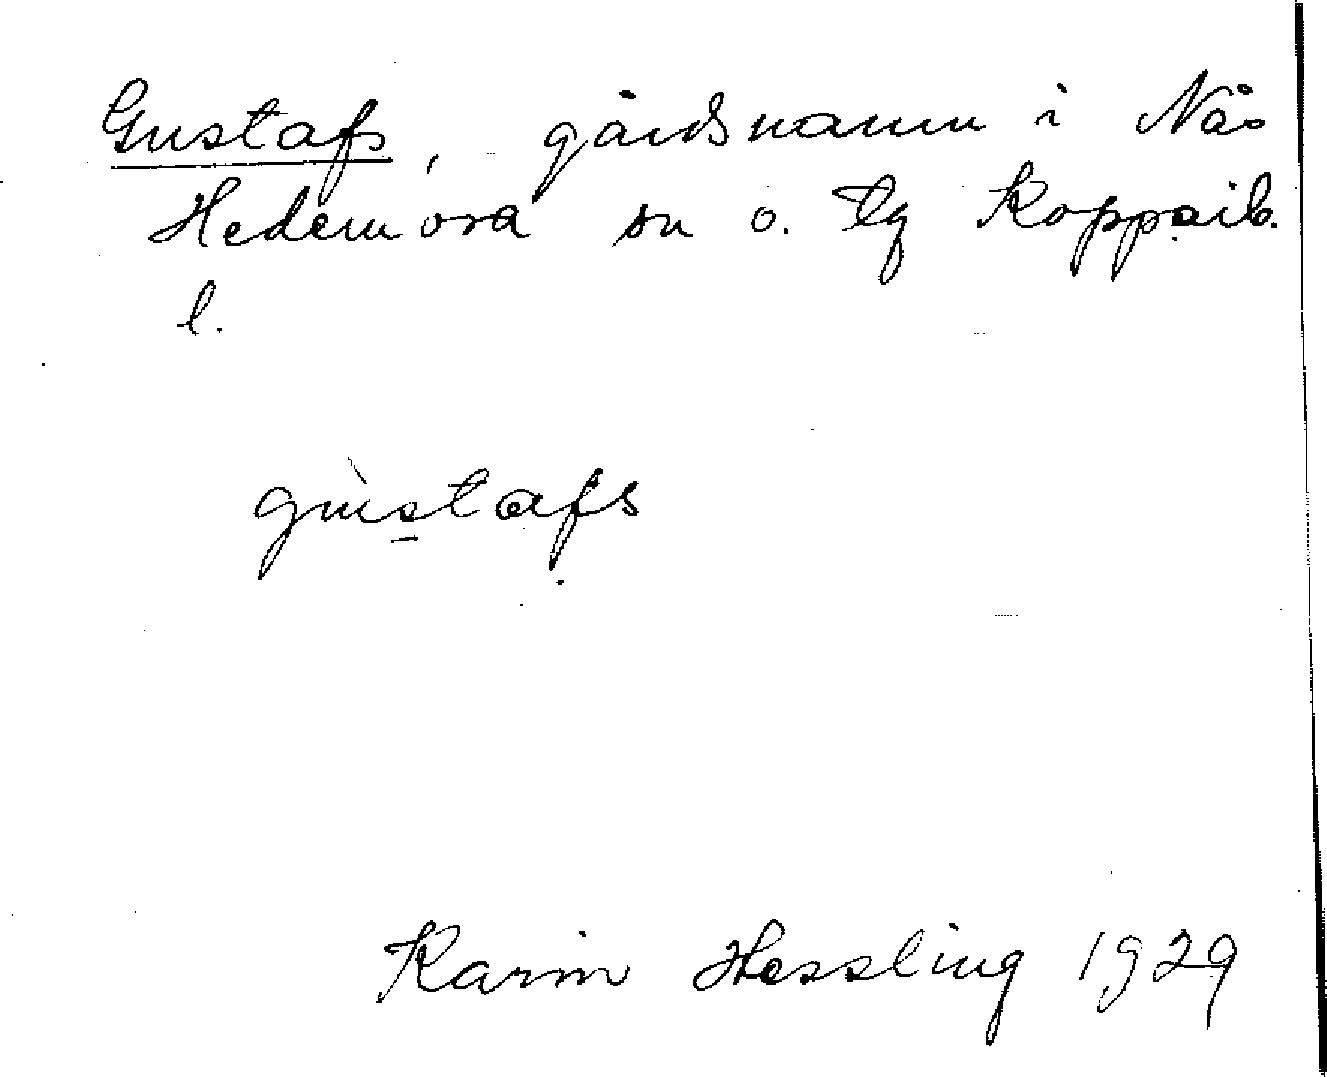 Gustafs, gårdsnamn i Näs
Hedemora sn o. tg Kopparb.
l.
gùstafs
Karin Hessling 1929